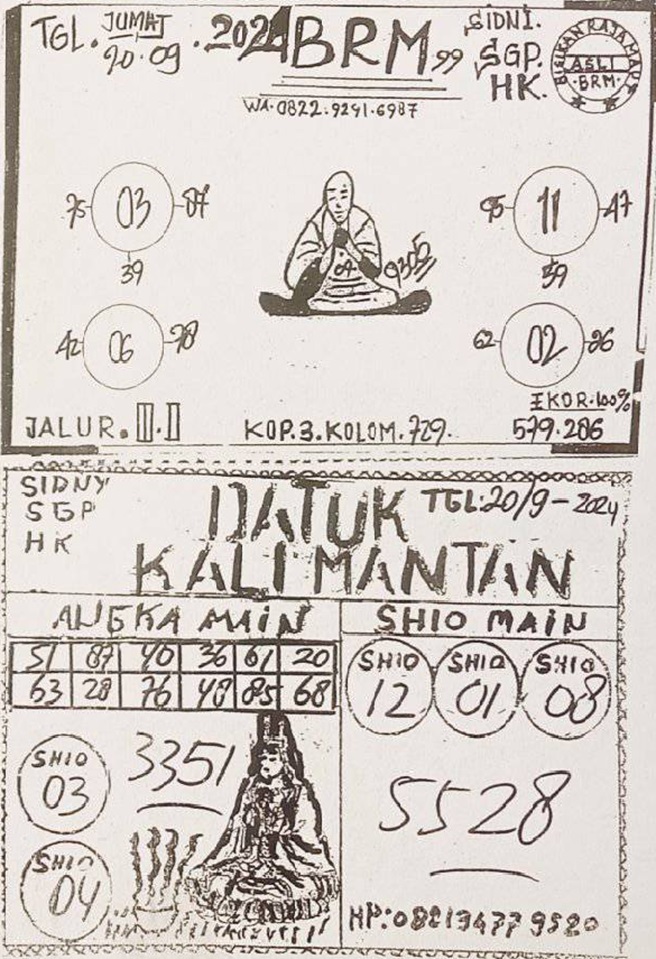 TGL. JUMAT 20.09.2024 BRM 99
SIDNI.
SGP.
HK.
BISIKAN RAJA MAUT
ASLI
BRM
WA.0822.9291.6987
03
75
87
39
11
95
47
39
09
9305
06
42
78
02
62
26
EKOR.100%
JALUR.III.II
KOP.3.KOLOM.729.
579.286
SIDNY
SGP
HK
DATUK
KALIMANTAN
TGL:20/9-2024
ANGKA MAIN
51 87 40 36 61 20
63 28 76 48 85 68
SHIO MAIN
SHIO 12
SHIO 01
SHIO 08
SHIO 03
3351
SHIO 04
5528
HP:082134779520